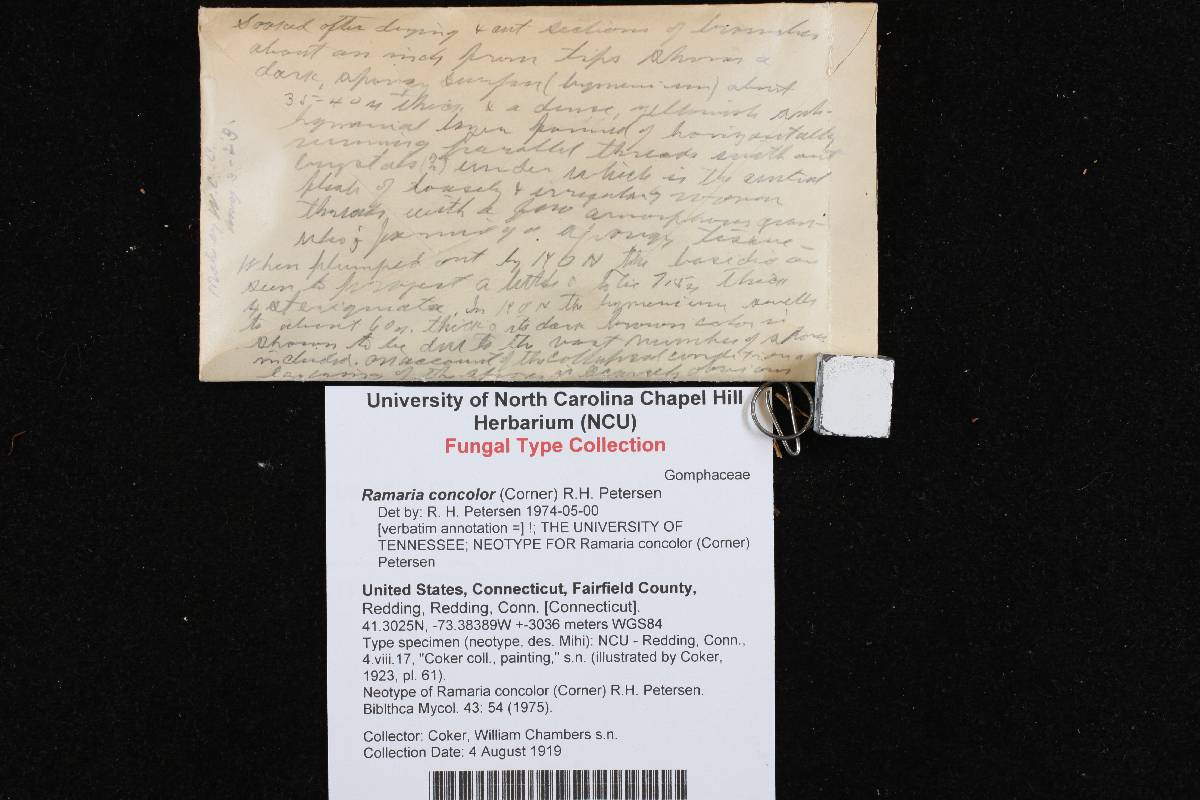 Soaked after drying & cut sections of branches
about an inch from tips shows a
dark, spongy surface (hymenium) about
35-40µ thick & a dense, yellowish sub-
hymenial layer formed of horizontally
running parallel threads without
crystals (?) under which is the central
plexus of loosely & irregularly woven
threads with a few amorphous gran-
ules; forming a spongy tissue –
When plumped out by KOH the basidia are
seen to project a little; 7.5µ thick
4 sterigmata. In KOH the hymenium swells
to about 60µ. thick & its dark brown color is
shown to be due to the vast number of spores
included. On account of the collapsed condition
of the spores is scarcely obvious
University of North Carolina Chapel Hill
Herbarium (NCU)
Fungal Type Collection
Gomphaceae
Ramaria concolor (Corner) R.H. Petersen
Det by: R. H. Petersen 1974-05-00
[verbatim annotation =] !; THE UNIVERSITY OF
TENNESSEE; NEOTYPE FOR Ramaria concolor (Corner)
Petersen
United States, Connecticut, Fairfield County,
Redding, Redding, Conn. [Connecticut].
41.3025N, -73.38389W +-3036 meters WGS84
Type specimen (neotype, des. Mihi): NCU - Redding, Conn.,
4.viii.17, "Coker coll., painting," s.n. (illustrated by Coker,
1923, pl. 61).
Neotype of Ramaria concolor (Corner) R.H. Petersen.
Biblthca Mycol. 43: 54 (1975).
Collector: Coker, William Chambers s.n.
Collection Date: 4 August 1919